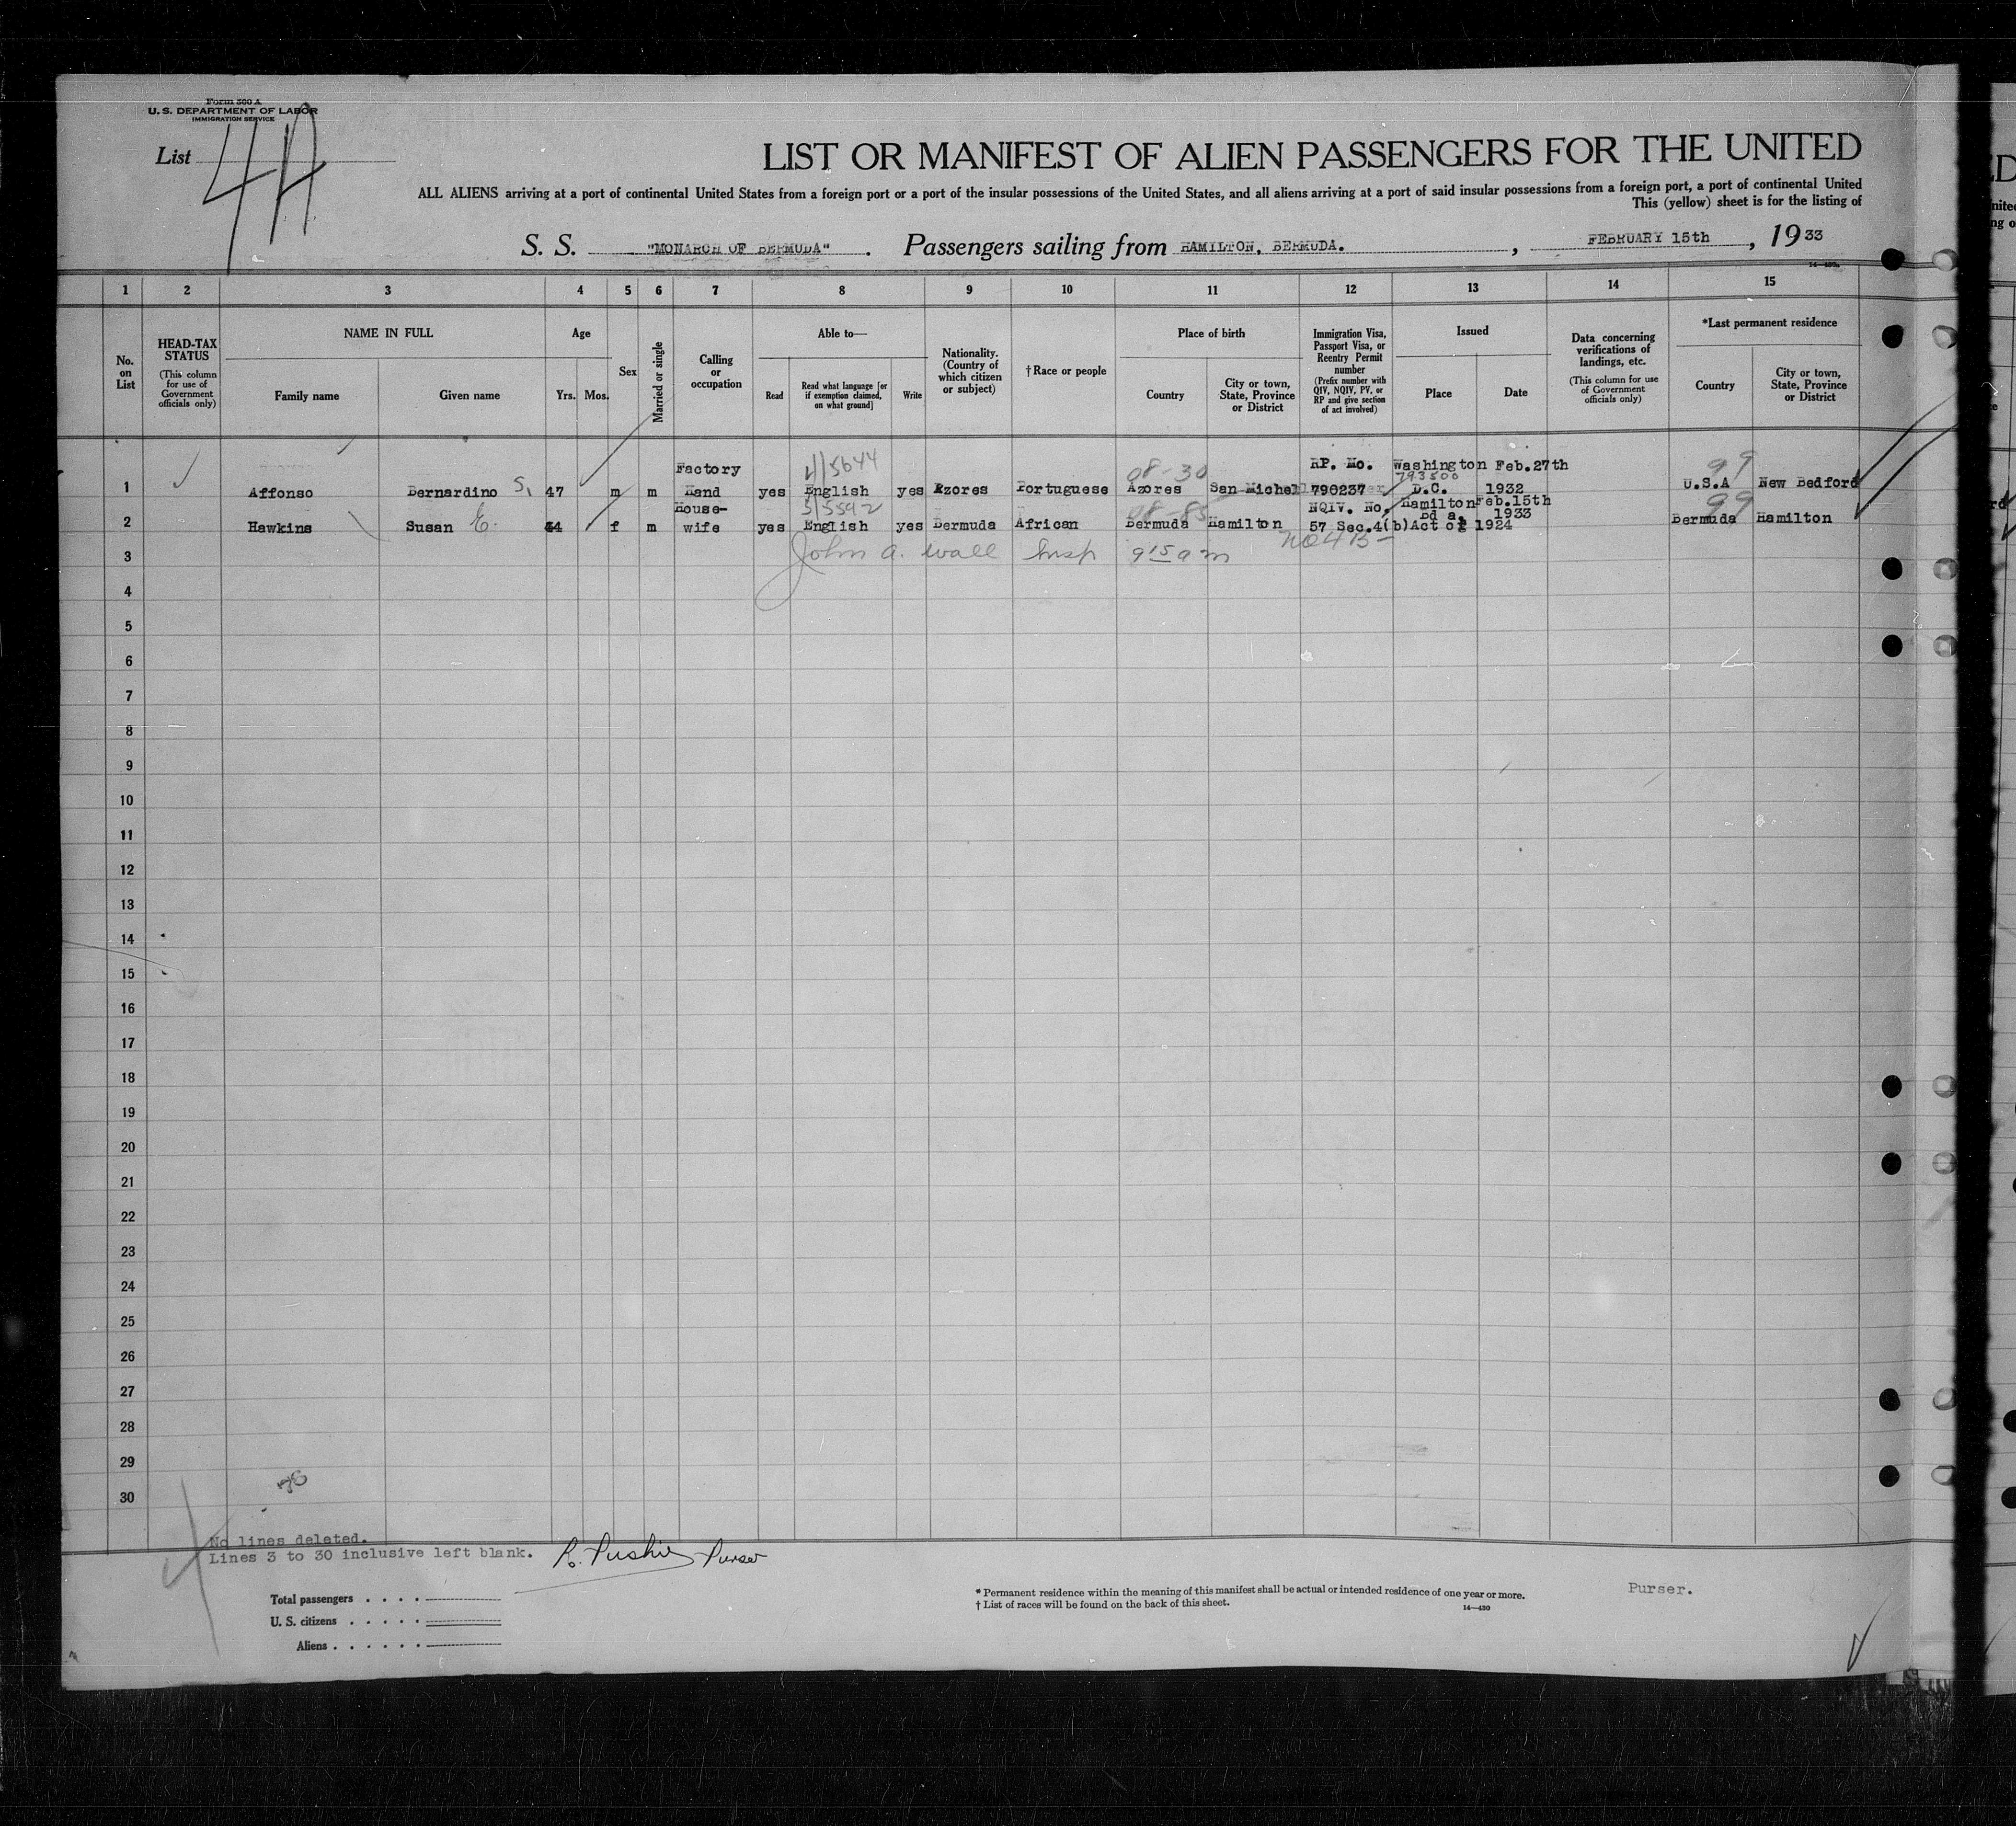 Form 500 A
U. S. DEPARTMENT OF LABOR
IMMIGRATION SERVICE
List 4A
LIST OR MANIFEST OF ALIEN PASSENGERS FOR THE UNITED
ALL ALIENS arriving at a port of continental United States from a foreign port or a port of the insular possessions of the United States, and all aliens arriving at a port of said insular possessions from a foreign port, a port of continental United
This (yellow) sheet is for the listing of
S. S. "MONARCH OF BERMUDA" . Passengers sailing from HAMILTON, BERMUDA. , FEBRUARY 15th , 1933
1 2 3 4 5 6 7 8 9 10 11 12 13 14 15
No. on List
HEAD-TAX STATUS
(This column for use of Government officials only)
NAME IN FULL
Family name
Given name
Age
Yrs.
Mos.
Sex
Married or single
Calling or occupation
Able to—
Read
Read what language [or if exemption claimed, on what ground]
Write
Nationality. (Country of which citizen or subject)
† Race or people
Place of birth
Country
City or town, State, Province or District
Immigration Visa, Passport Visa, or Reentry Permit number
(Prefix number with QIV, NQIV, PV, or RP and give section of act involved)
Issued
Place
Date
Data concerning verifications of landings, etc.
(This column for use of Government officials only)
*Last permanent residence
Country
City or town, State, Province or District
Factory 4/5644 08-30 RP. No. Washington Feb.27th 99
793500
1 Affonso Bernardino S. 47 m m Hand yes English yes Azores Portuguese Azores San Michel 790237 D.C. 1932 U.S.A New Bedford
House- 3/5592 08-85 NQIV. No. Hamilton Feb.15th 99
Bd a. 1933
2 Hawkins Susan E. 44 f m wife yes English yes Bermuda African Bermuda Hamilton 57 Sec.4(b)Act of 1924 Bermuda Hamilton
3 John A. Wall Insp 9 15 am
4
5
6
7
8
9
10
11
12
13
14
15
16
17
18
19
20
21
22
23
24
25
26
27
28
29
30
No lines deleted.
Lines 3 to 30 inclusive left blank.
Purser
Total passengers . . . .
U. S. citizens . . . . .
Aliens . . . . . .
* Permanent residence within the meaning of this manifest shall be actual or intended residence of one year or more.
† List of races will be found on the back of this sheet.
14—430
Purser.